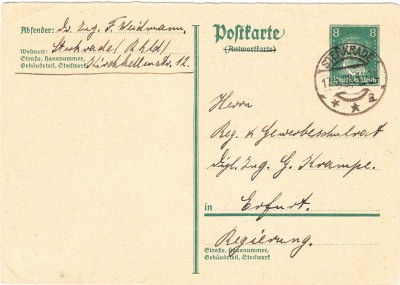 Absender: Dr. Ing. F. Weidmann,
Wohnort: Sterkrade (Rhld)
Straße, Hausnummer,
Gebäudeteil, Stockwerk Kirchhellenstr. 12
Postkarte
(Antwortkarte)
8 8
STERKRADE
Deutsches Reich
* * a
Herrn
Reg. & Gewerbeschulrat
Dipl. Ing. G. Krampe.
in Erfurt.
Regierung.
Straße, Hausnummer,
Gebäudeteil, Stockwerk